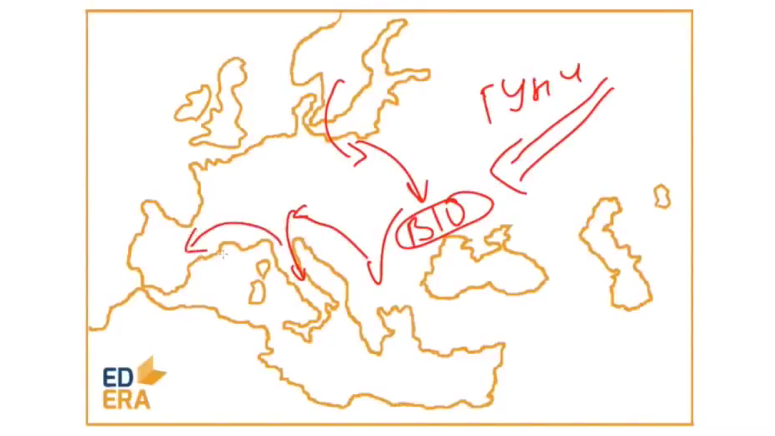 гуни
ВІО
ED
ERA